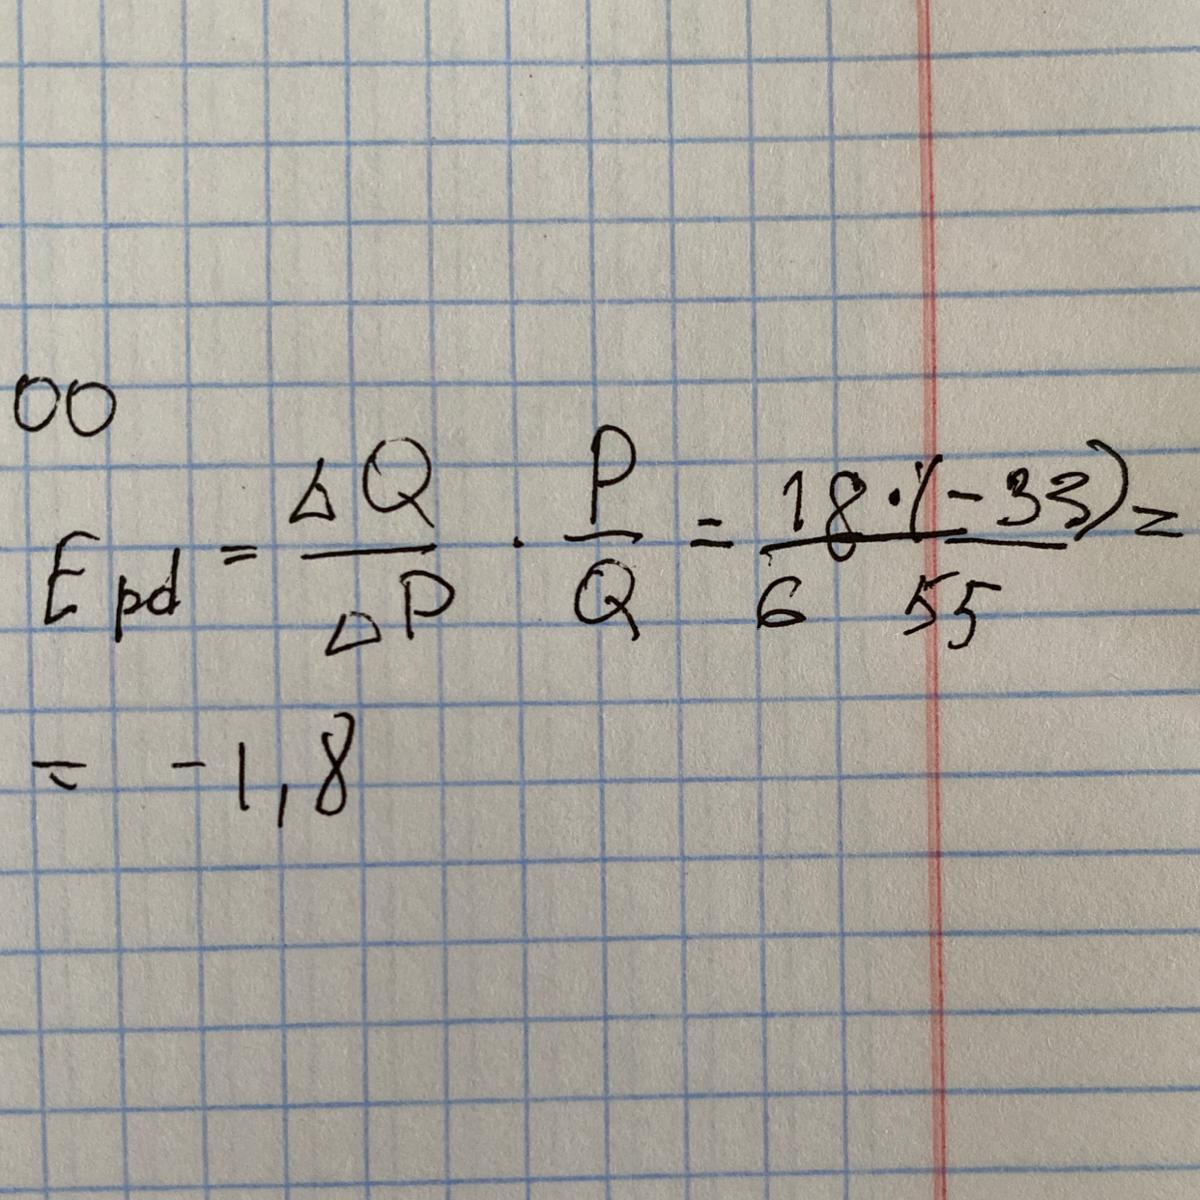 00
Epd = ΔQ/ΔP · P/Q = 18·(-33)/6 55 =
= -1,8